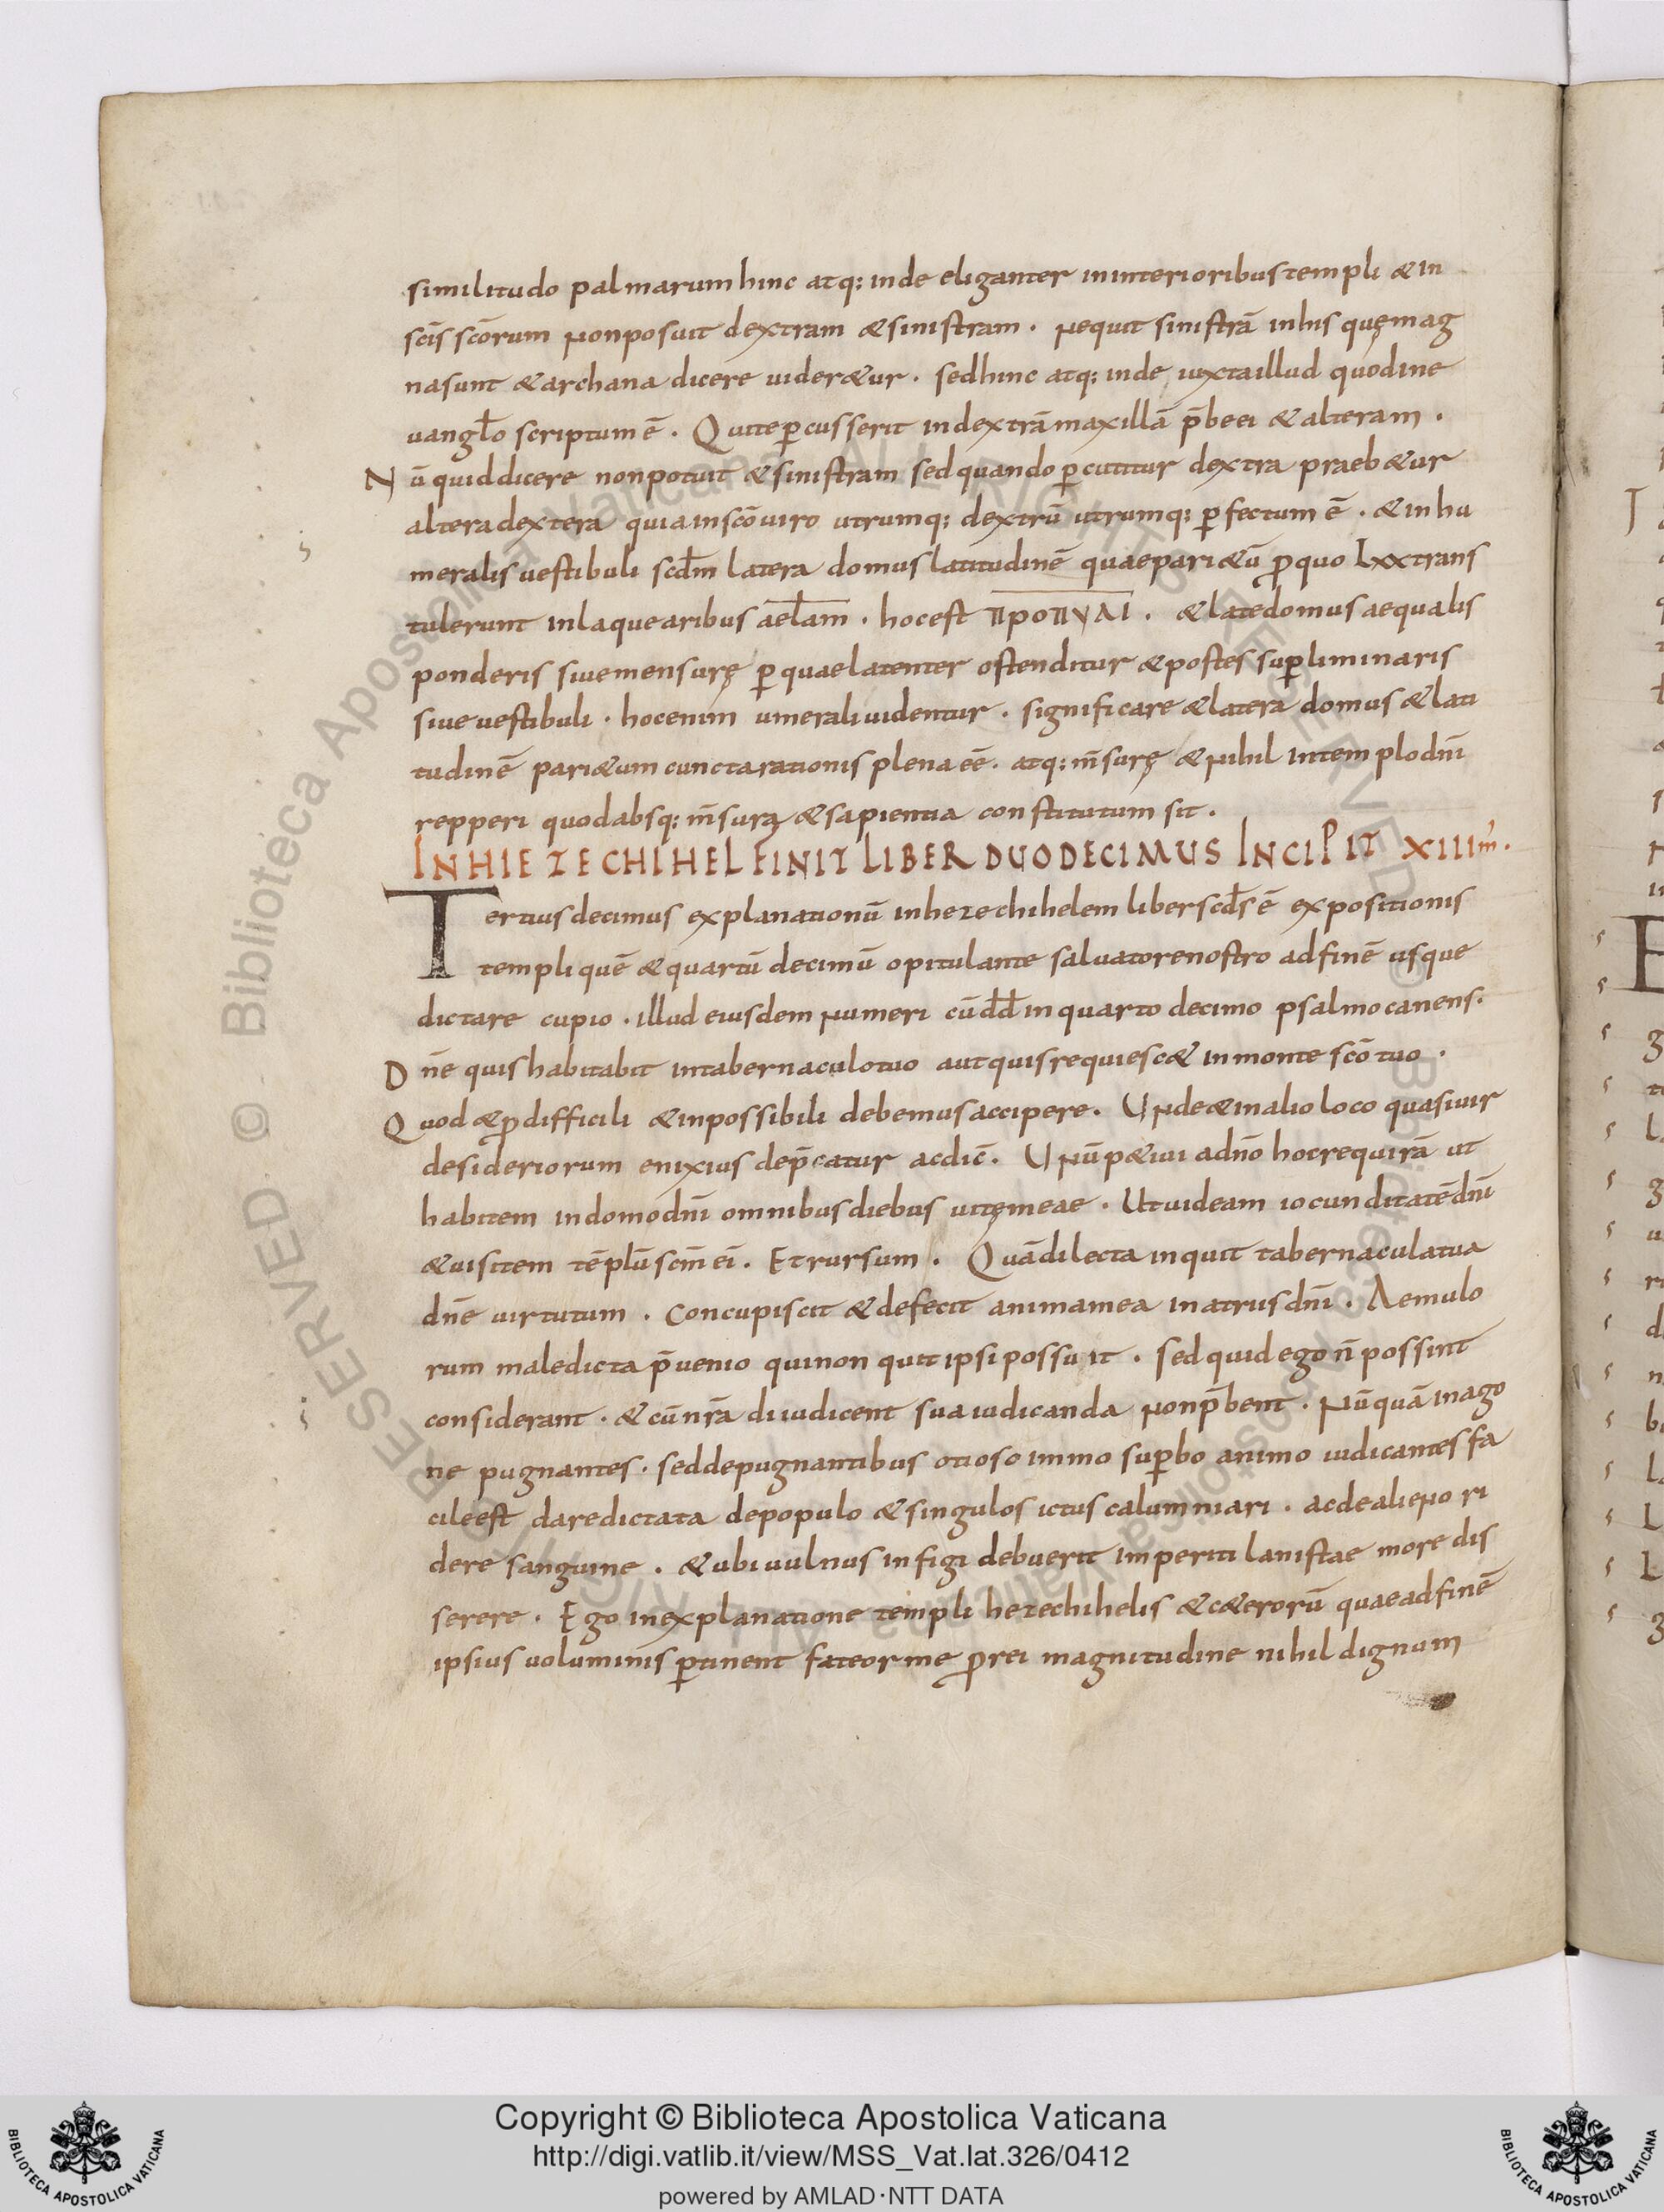 similitudo palmarum hinc atq; inde eliganter ininterioribus templi & in
scīs scōrum non posuit dextram & sinistram . ne quit sinistrā inhis quę mag
na sunt & archana dicere uider&ur . sed hinc atq; inde iuxta illud quod ine
uangƚo scriptum ē . Qui te ꝑcusserit in dextrā maxillā p̄be ei & alteram .
Nū quid dicere non potuit & sinistram sed quando ꝑcutitur dextra praeb&ur
altera dextera quia in scō uiro utrumq; dextrū utrumq; ꝑfectum ē . & in hu
meralis uestibuli scd̄m latera domus latitudinē quae pari&ū ꝓ quo Lxx trans
tulerunt in laquearibus aelam . hoc est ΠΡΟΠΥΛΙ . & late domus aequalis
ponderis siue mensurę ꝑ quae latenter ostenditur & postes suꝑliminaris
siue uestibuli . hoc enim umerali uidentur . significare & latera domus & lati
tudinē pari&um cuncta rationis plena eē . atq; m̄surę & nihil in templo dn̄i
repperi quod absq; m̄sura & sapientia constitutum sit .
IN HIEZECHIHEL FINIT LIBER DUODECIMUS INCIPIT XIIIm .
Tertius decimus explanationū in hezechihelem liber scd̄s ē expositionis
templi quē & quartū decimū opitulante saluatore nostro ad finē usque
dictare cupio . illud eiusdem numeri cū dd̄ in quarto decimo psalmo canens .
Dn̄e quis habitabit in tabernaculo tuo aut quis requiesc& in monte scō tuo .
Quod & ꝓ difficili & inpossibili debemus accipere . Unde & in alio loco quasi uir
desideriorum enixius dep̄catur ac dic̄ . Unū p&iui a dn̄o hoc requirā ut
habitem in domo dn̄i omnibus diebus uitę meae . Ut uideam iocunditatē dn̄i
& uisitem tēplū scm̄ ei . Et rursum . Quā dilecta inquit tabernacula tua
dn̄e uirtutum . Concupiscit & defecit anima mea in atriis dn̄i . Aemulo
rum maledicta p̄uenio qui non quit ipsi possu it . sed quid ego n̄ possint
considerant . & cū nr̄a diiudicent sua iudicanda non p̄bent . nū quā in ago
ne pugnantes . sed de pugnantibus otioso immo suꝑbo animo iudicantes fa
cile est dare dictata de populo & singulos ictus calumniari . ac de alieno ri
dere sanguine . & ubi uulnus infigi debuerit imperiti lanistae more dis
serere . Ego in explanatione templi hezechihelis & c&erorū quae ad finē
ipsius uoluminis ꝑtinent fateor me ꝓ rei magnitudine nihil dignum
Copyright © Biblioteca Apostolica Vaticana
http://digi.vatlib.it/view/MSS_Vat.lat.326/0412
powered by AMLAD·NTT DATA